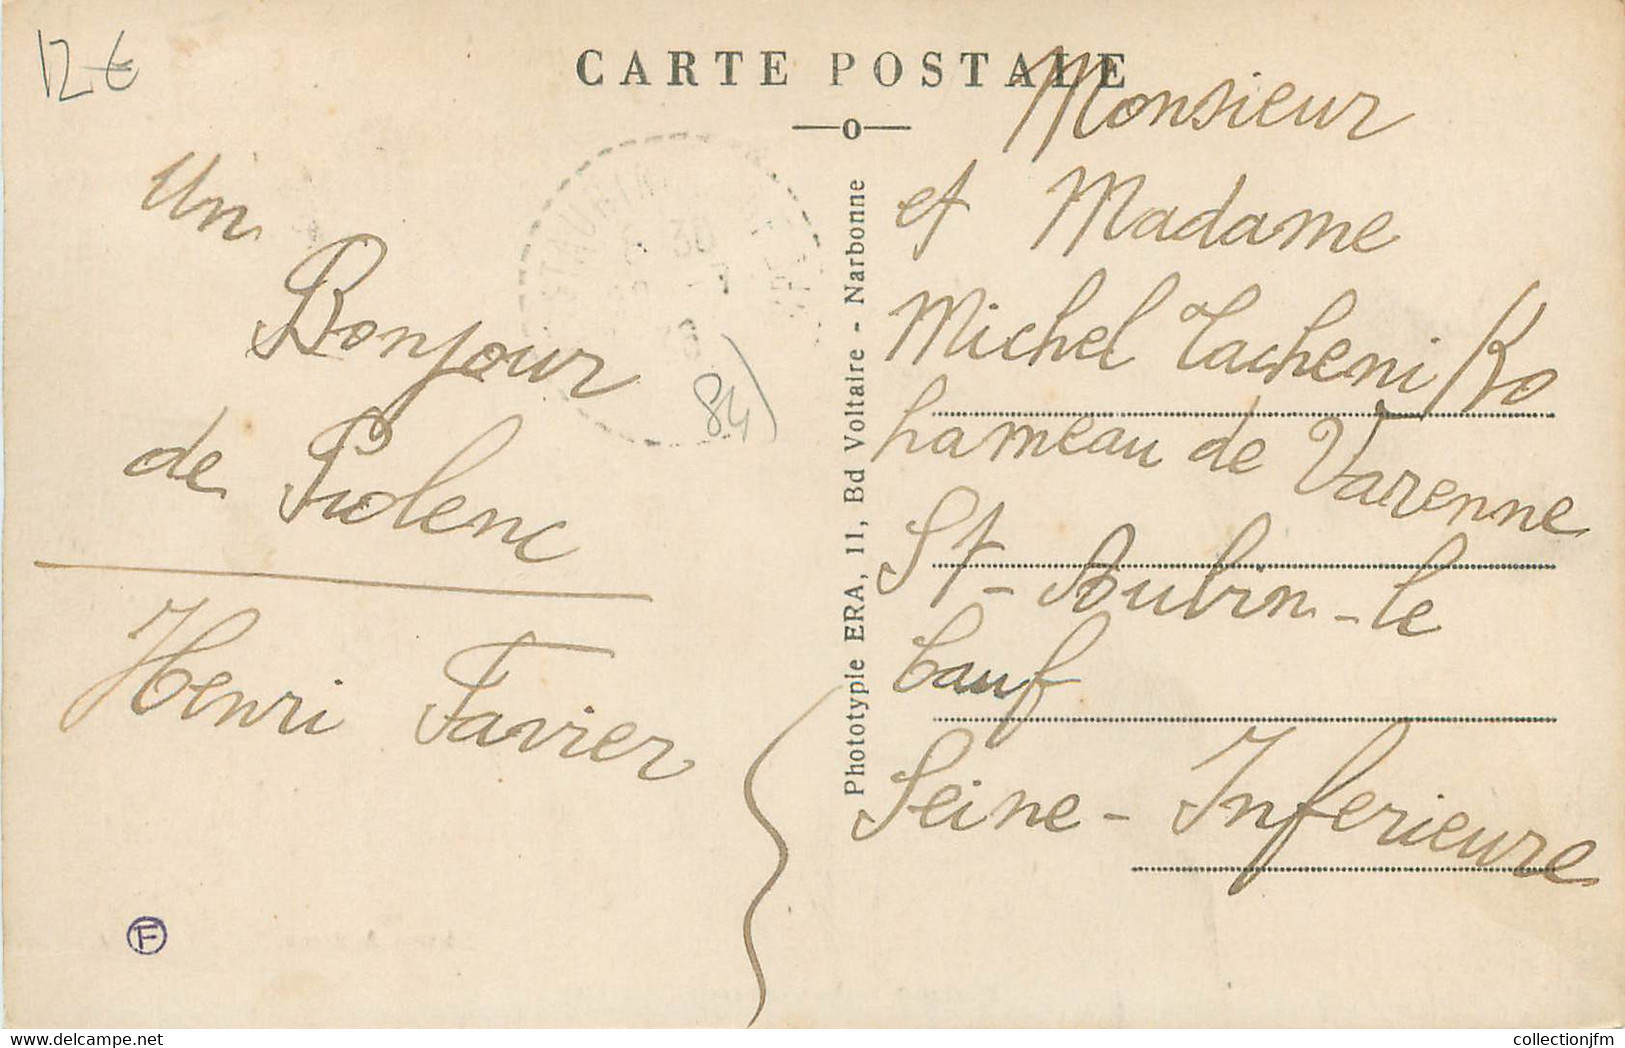 12€
CARTE POSTALE
—o—
Un
Bonjour
de Piolenc
Henri Favier
84
Phototypie ERA, 11, Bd Voltaire - Narbonne
Monsieur
et Madame
Michel Tacheni Ko
hameau de Varenne
St-Aubin-le
Cauf
Seine-Inferieure
F
collectionjfm